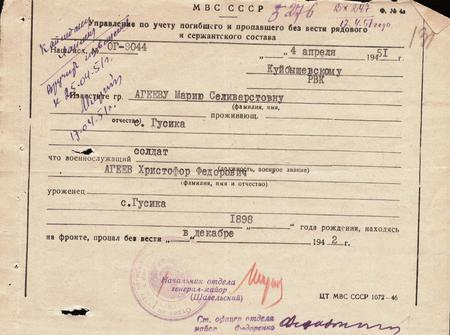 МВС СССР
Ф. № 4а
Управление по учету погибшего и пропавшего без вести рядового
и сержантского состава
17.4.51 года
ОГ-9044
„ 4 апреля 1951
Куйбышевскому
РВК
Известите гр. АГЕЕВУ Марию Селиверстовну
(фамилия, имя,
отчество) проживающ.
с. Гусика
солдат
что военнослужащий
(должность, военное звание)
АГЕЕВ Христофор Федорович
(фамилия, имя и отчество)
уроженец
с.Гусика
1898
года рождения, находясь
на фронте, пропал без вести в декабре 1942 г.
Начальник отдела
генерал-майор
(Шавельский)
ЦТ МВС СССР 1072-46
Ст. офицер отдела
майор Федоренко
вручить извещение
к 25.04.51г.
17.04.51г.